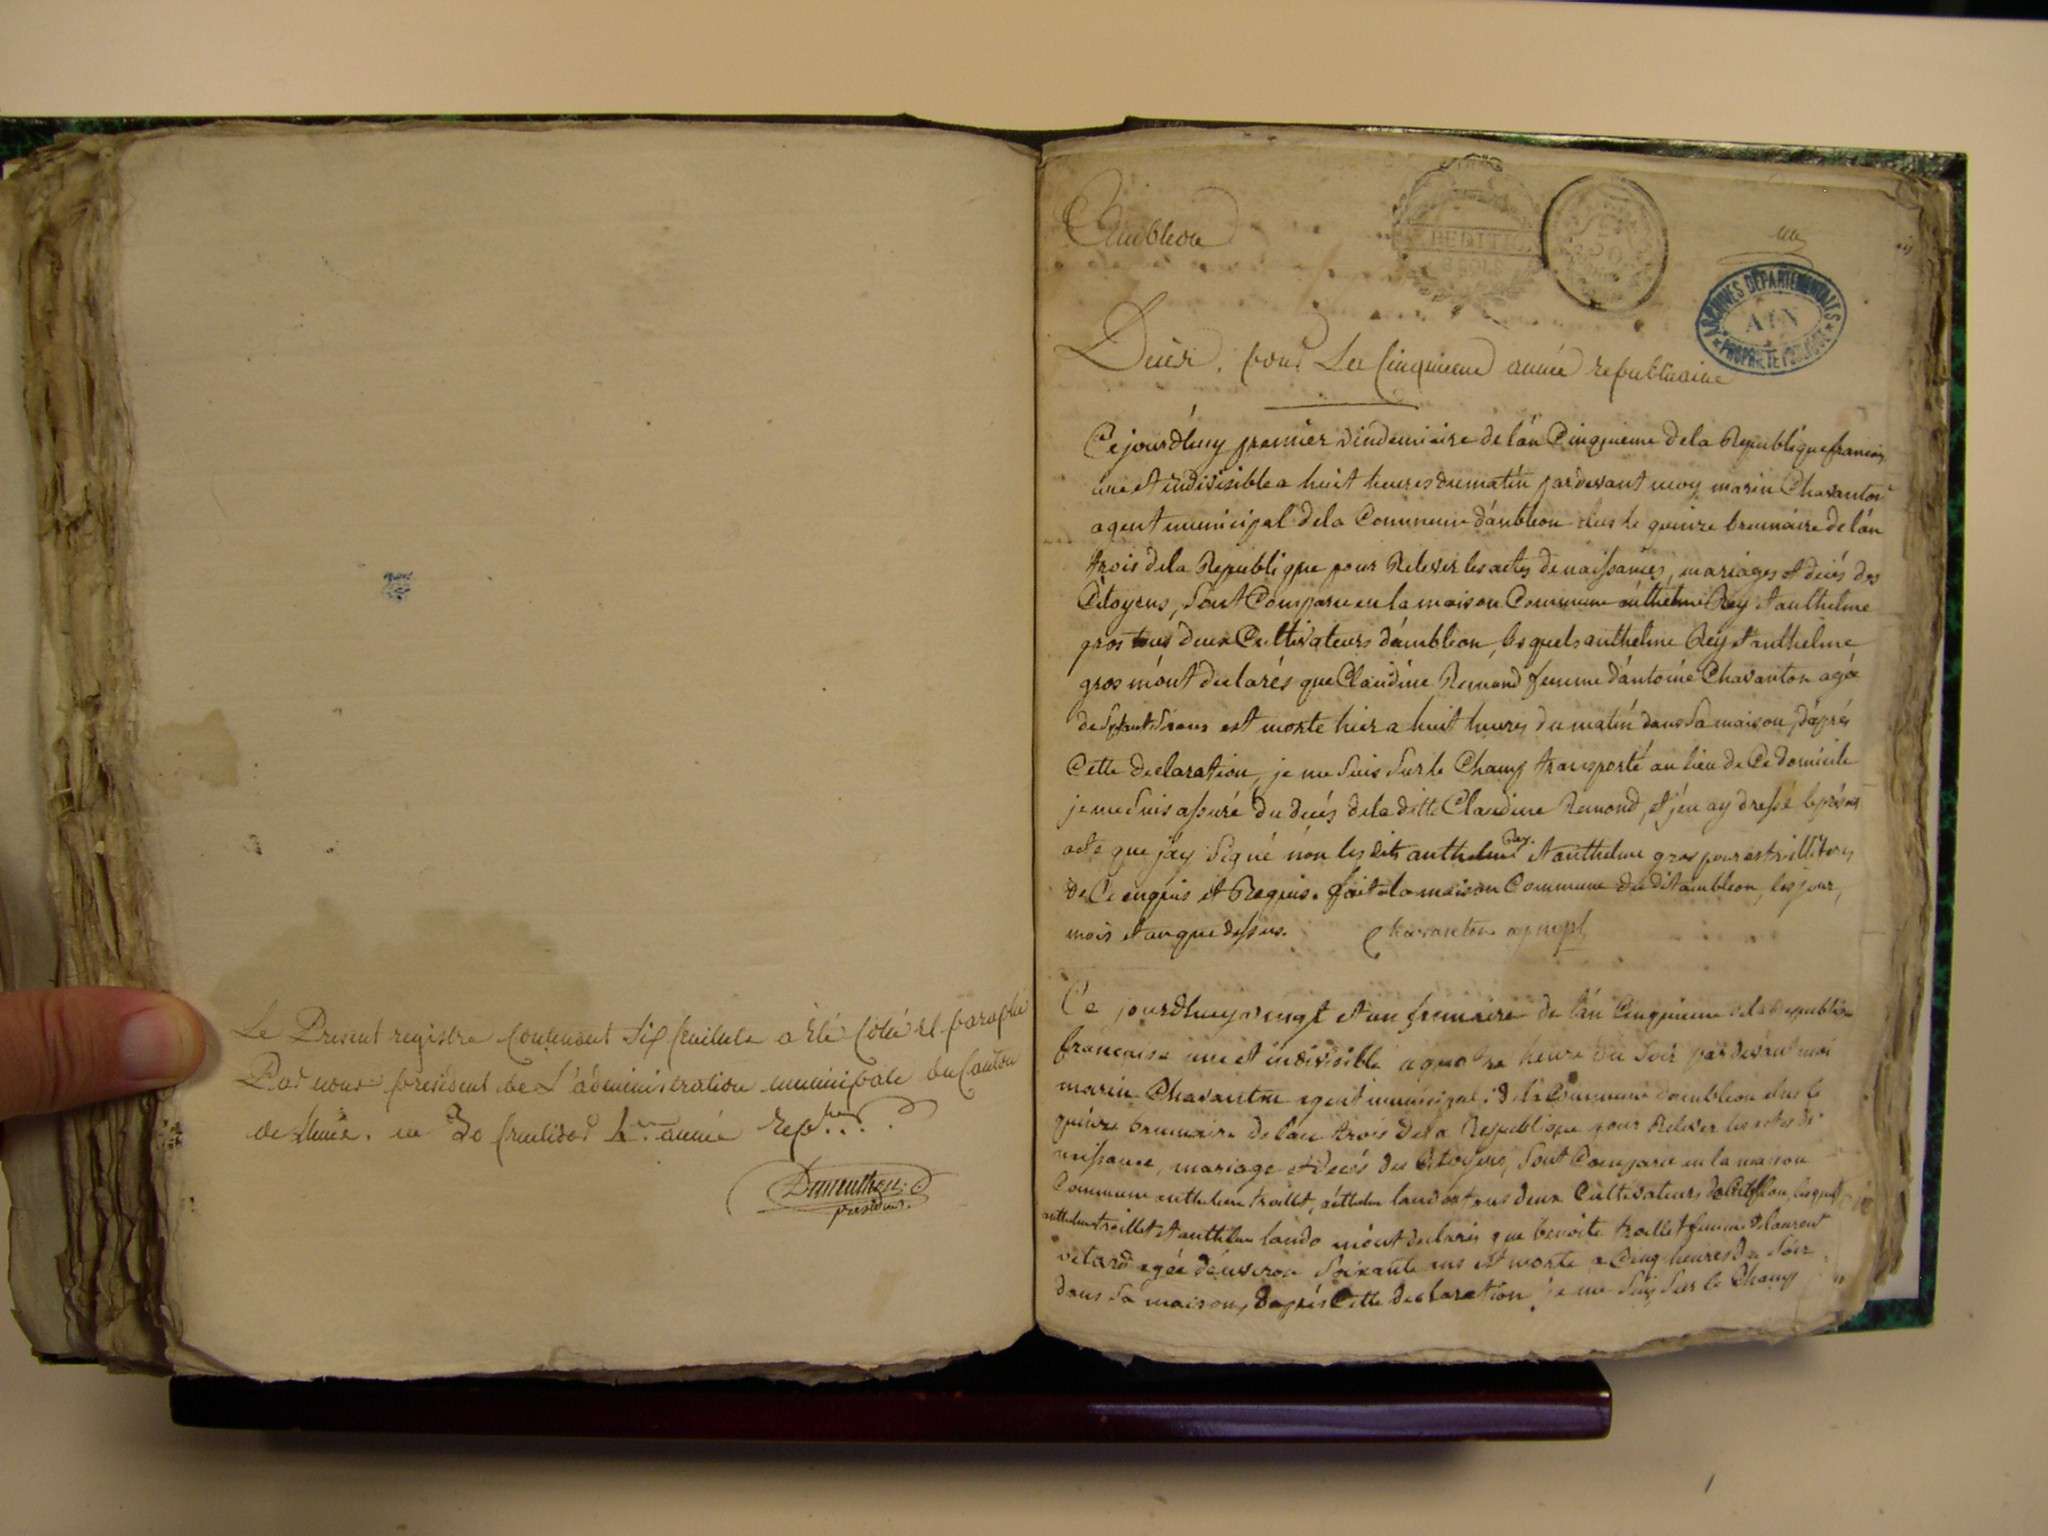 Le Present registre Contenant Six feuillets a été Coté et paraphé
Par nous president de L'administration municipale du Canton
de Lhuis. ce 30 fructidor 4.me année Rep.ne
president.
Ambleon
un
ARCHIVES DÉPARTEMENTALES
AIN
PROPRIÉTÉ PUBLIQUE
Décés. pour La Cinquieme année republicaine
Cejourdhuy premier vindemiaire de lán Cinquieme dela Republique francais
une et indivisible a huit heures du matin pardevant moy marin Chavanton
agent municipal dela Commune dámbleon elus le quinze brumaire de lán
trois dela Republique pour Relever les actes denaissances, mariages et décés des
Citoyens, Sont Comparu en la maison Commune anthelme Rey et anthelme
gros tous deux Cultivateurs dámbleon, lesquels anthelme Rey et anthelme
gros mónt declarés que Claudine Remond femme dántoine Chavanton agée
de ans est morte hier a huit heures du matin dans Sa maison, dáprés
Cette declaration, je me Suis Sur le Champ transporté au lieu de Ce domicile
je me Suis assuré du decés dela ditte Claudine Remond, et jén ay dressé le présent
acte que jáy Signé non les dits anthelme Rey et anthelme gros pour estre illitery
de Ce enquis et Requis. fait a la maison Commune du dit ambleon, les jour,
mois et an que dessus. Chavanton ag mpl
Ce jourdhuy vingt et un frimaire de lán Cinquieme de la Republique
francaise une et indivisible a quatre heure du Soir pardevant moi
marin Chavanton agent municipal de la Commune dambleon elus le
quinze brumaire de lan trois dela Republique pour Relever les actes de
naissance, mariage et decés des Citoyens, Sont Comparu en la maison
Commune anthelme trollet, anthelme landoz tous deux Cultivateurs dambleon, lesquels
anthelme trollet et anthelme lando mónt declarés que benoite trollet femme de laurent
vetard agée dénviron Soixante ans est morte a Cinq heures du Soir
dans Sa maison, daprés Cette declaration je me Suis Sur le Champ